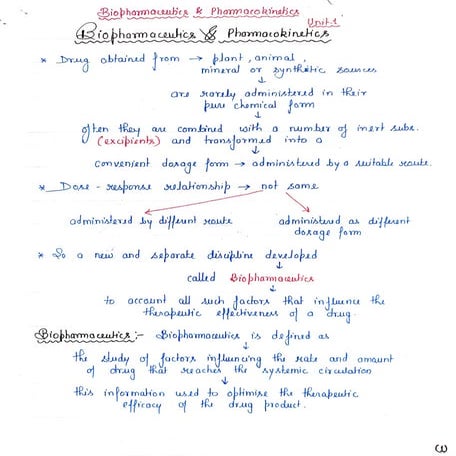 Biopharmaceutics & Pharmacokinetics
Unit-1
Biopharmaceutics & Pharmacokinetics
* Drug obtained from → plant, animal,
mineral or synthetic sources
↓
are rarely administered in their
pure chemical form
↓
often they are combined with a number of inert subs.
(excipients) and transformed into a
↓
convenient dosage form → administered by a suitable route.
* Dose-response relationship → not same
administered by different route
administered as different
dosage form
* So a new and separate discipline developed
↓
called Biopharmaceutics
↓
to account all such factors that influence the
therapeutic effectiveness of a drug.
Biopharmaceutics:- Biopharmaceutics is defined as
↓
the study of factors influencing the rate and amount
of drug that reaches the systemic circulation
↓
this information used to optimise the therapeutic
efficacy of the drug product.